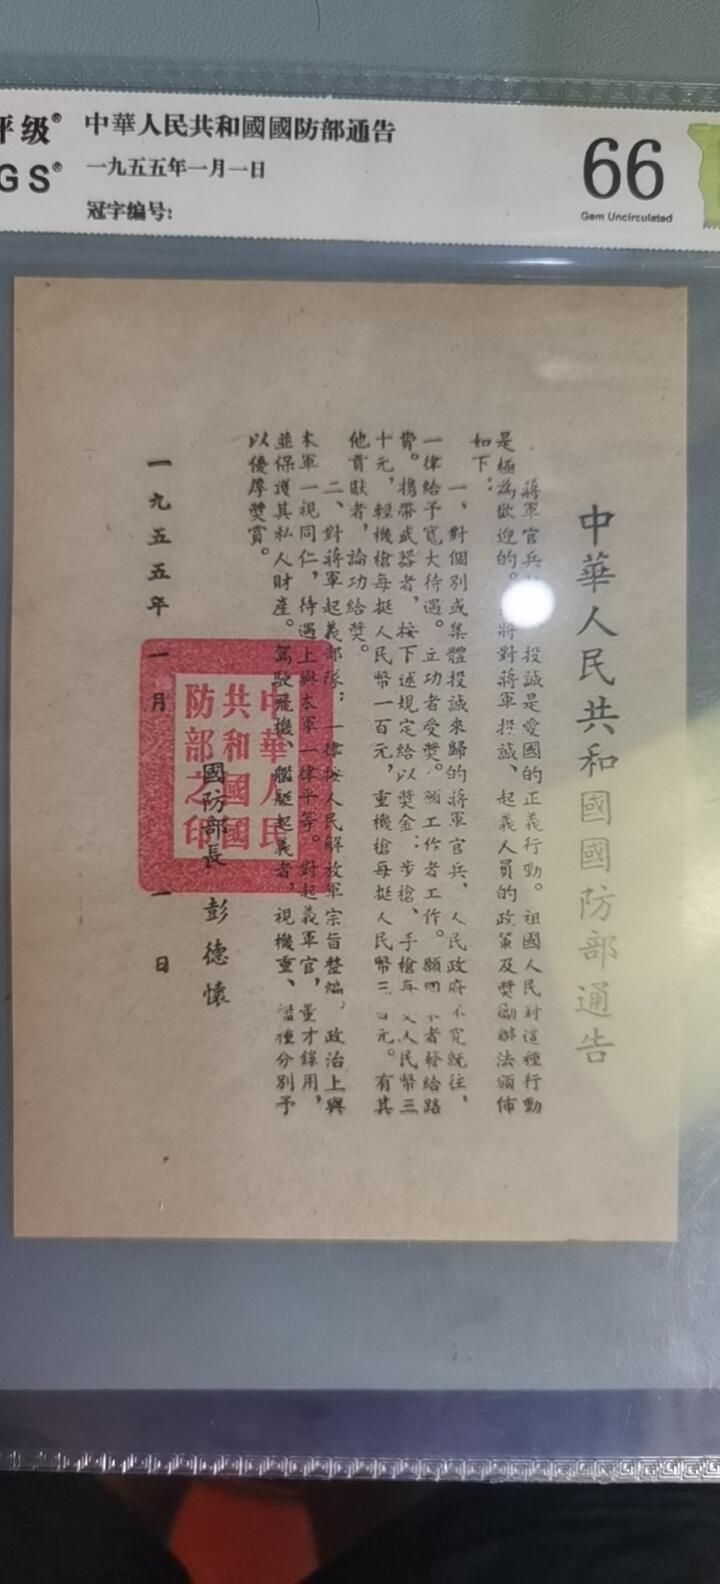 评级®
GS®
中華人民共和國國防部通告
一九五五年一月一日
冠字编号:
66
Gem Uncirculated
中華人民共和國國防部通告
蔣軍官兵 投誠是愛國的正義行動。祖國人民對這種行動
是極為歡迎的。 將對蔣軍投誠、起義人員的政策及獎勵辦法頒佈
如下:
一、對個別或集體投誠來歸的蔣軍官兵、人民政府不究既往,
一律給予寬大待遇。立功者受獎。願工作者工作。願回 者發給路
費。携帶武器者,按下述規定給以獎金:步槍、手槍每 人民幣三
十元,輕機槍每挺人民幣一百元,重機槍每挺人民幣三 元。有其
他貢獻者,論功給獎。
二、對蔣軍起義部隊:一律按人民解放軍宗旨整編,政治上與
本軍一視同仁,待遇上與本軍一律平等。對起義軍官,量才錄用,
並保護其私人財產。駕駛飛機、艦艇起義者,視機重、艦種分別予
以優厚獎賞。
國防部長 彭德懷
一九五五年一月一日
中華人民
共和國國
防部之印